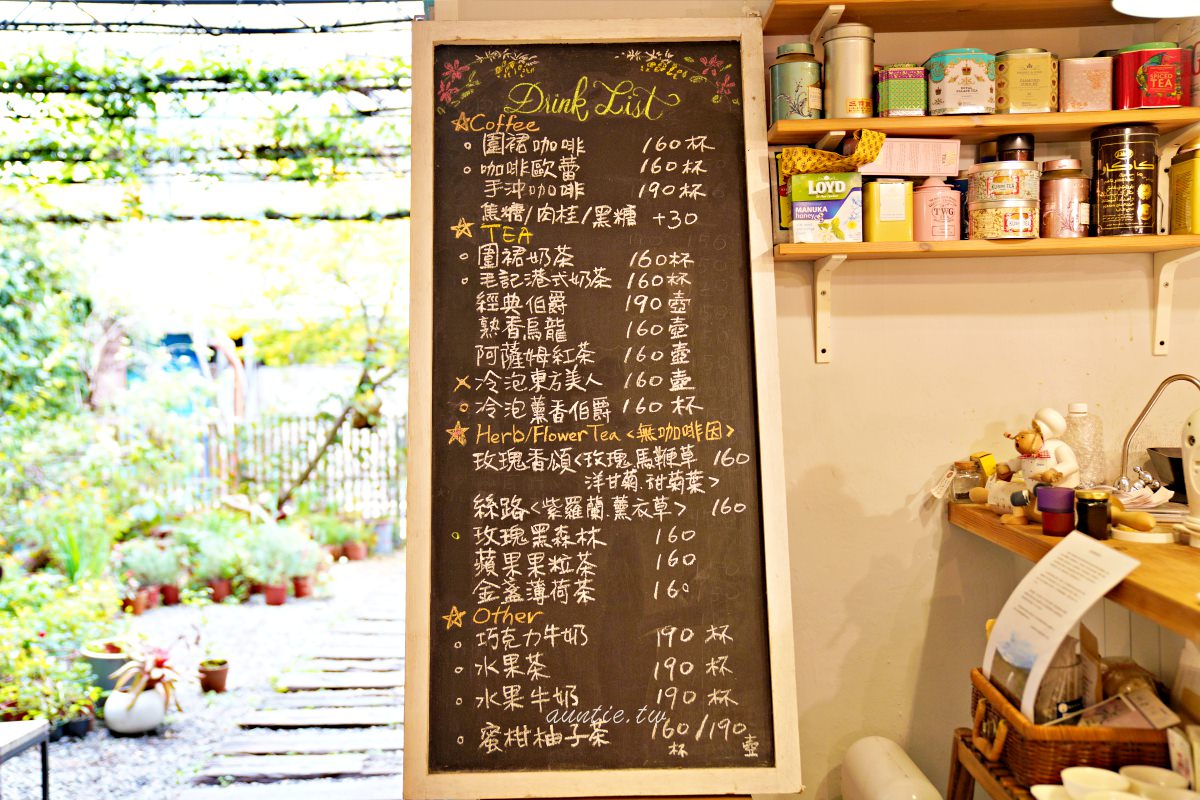 Drink List
☆Coffee
○ 圍裙咖啡 160杯
○ 咖啡歐蕾 160杯
手沖咖啡 190杯
焦糖/肉桂/黑糖 +30
☆TEA
○ 圍裙奶茶 160杯
○ 毛記港式奶茶 160杯
經典伯爵 190壺
熟香烏龍 160壺
阿薩姆紅茶 160壺
×冷泡東方美人 160壺
○冷泡薰香伯爵 160杯
☆Herb/FlowerTea<無咖啡因>
玫瑰香頌<玫瑰.馬鞭草 160
洋甘菊.甜菊葉>
絲路<紫羅蘭.薰衣草> 160
○ 玫瑰黑森林 160
蘋果果粒茶 160
金盞薄荷茶 160
☆Other
○ 巧克力牛奶 190 杯
○ 水果茶 190 杯
○ 水果牛奶 190 杯
○ 蜜柑柚子茶 160/190
杯 壺
auntie.tw
SPICED
TEA
LOYD
MANUKA
honey
KUSMI TEA
TWG